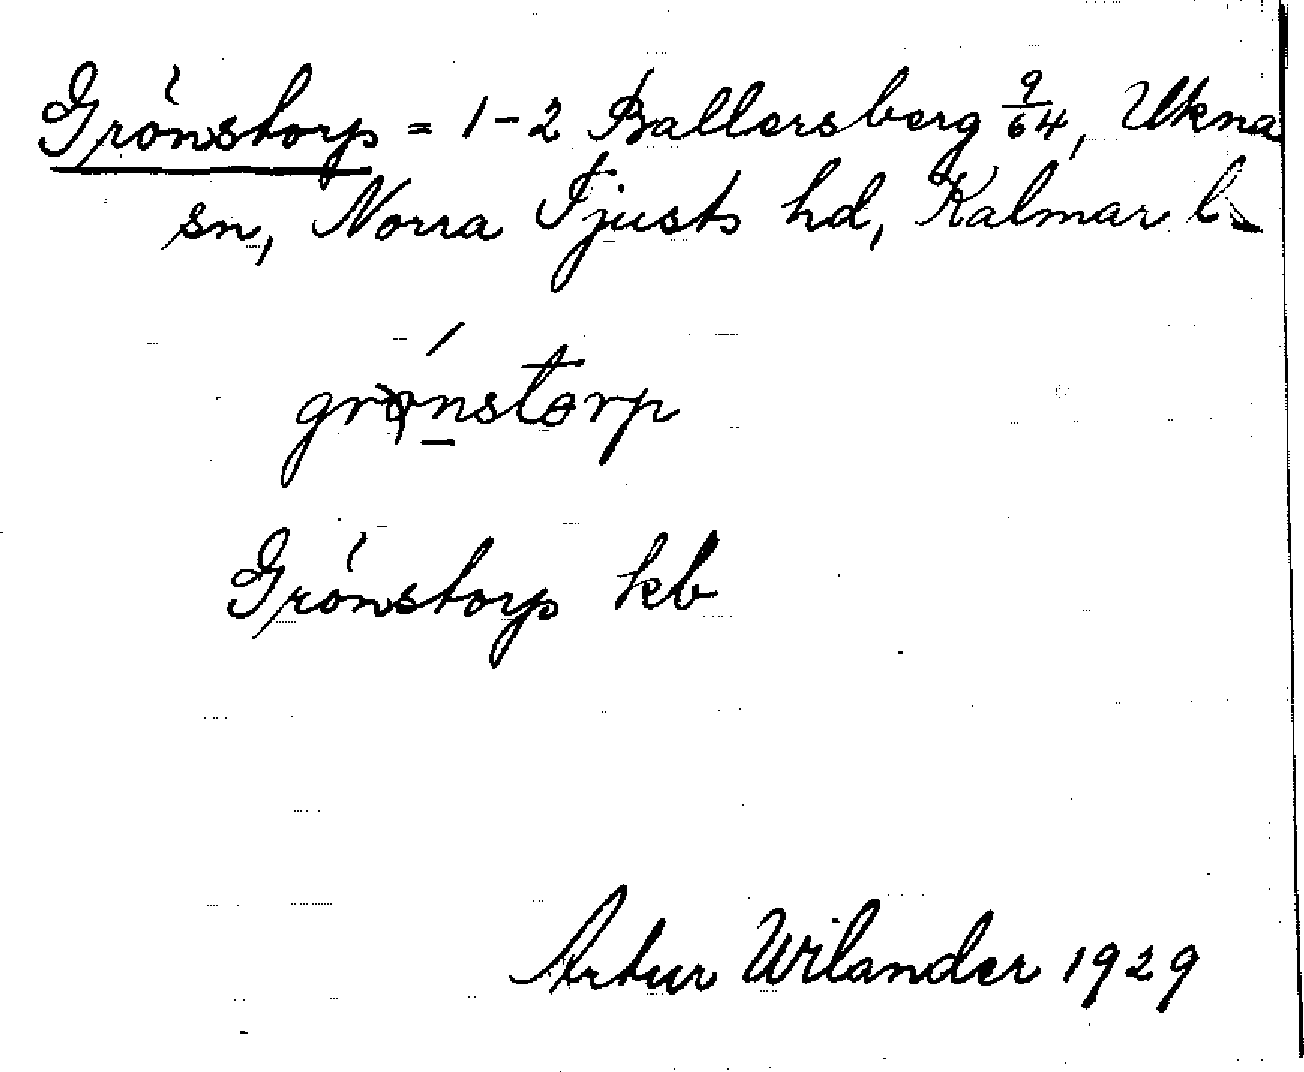 Grönstorp = 1-2 Ballersberg 9/64, Ukna
sn, Norra Tjusts hd, Kalmar l.
grǿnstorp
Grönstorp kb
Artur Wilander 1929